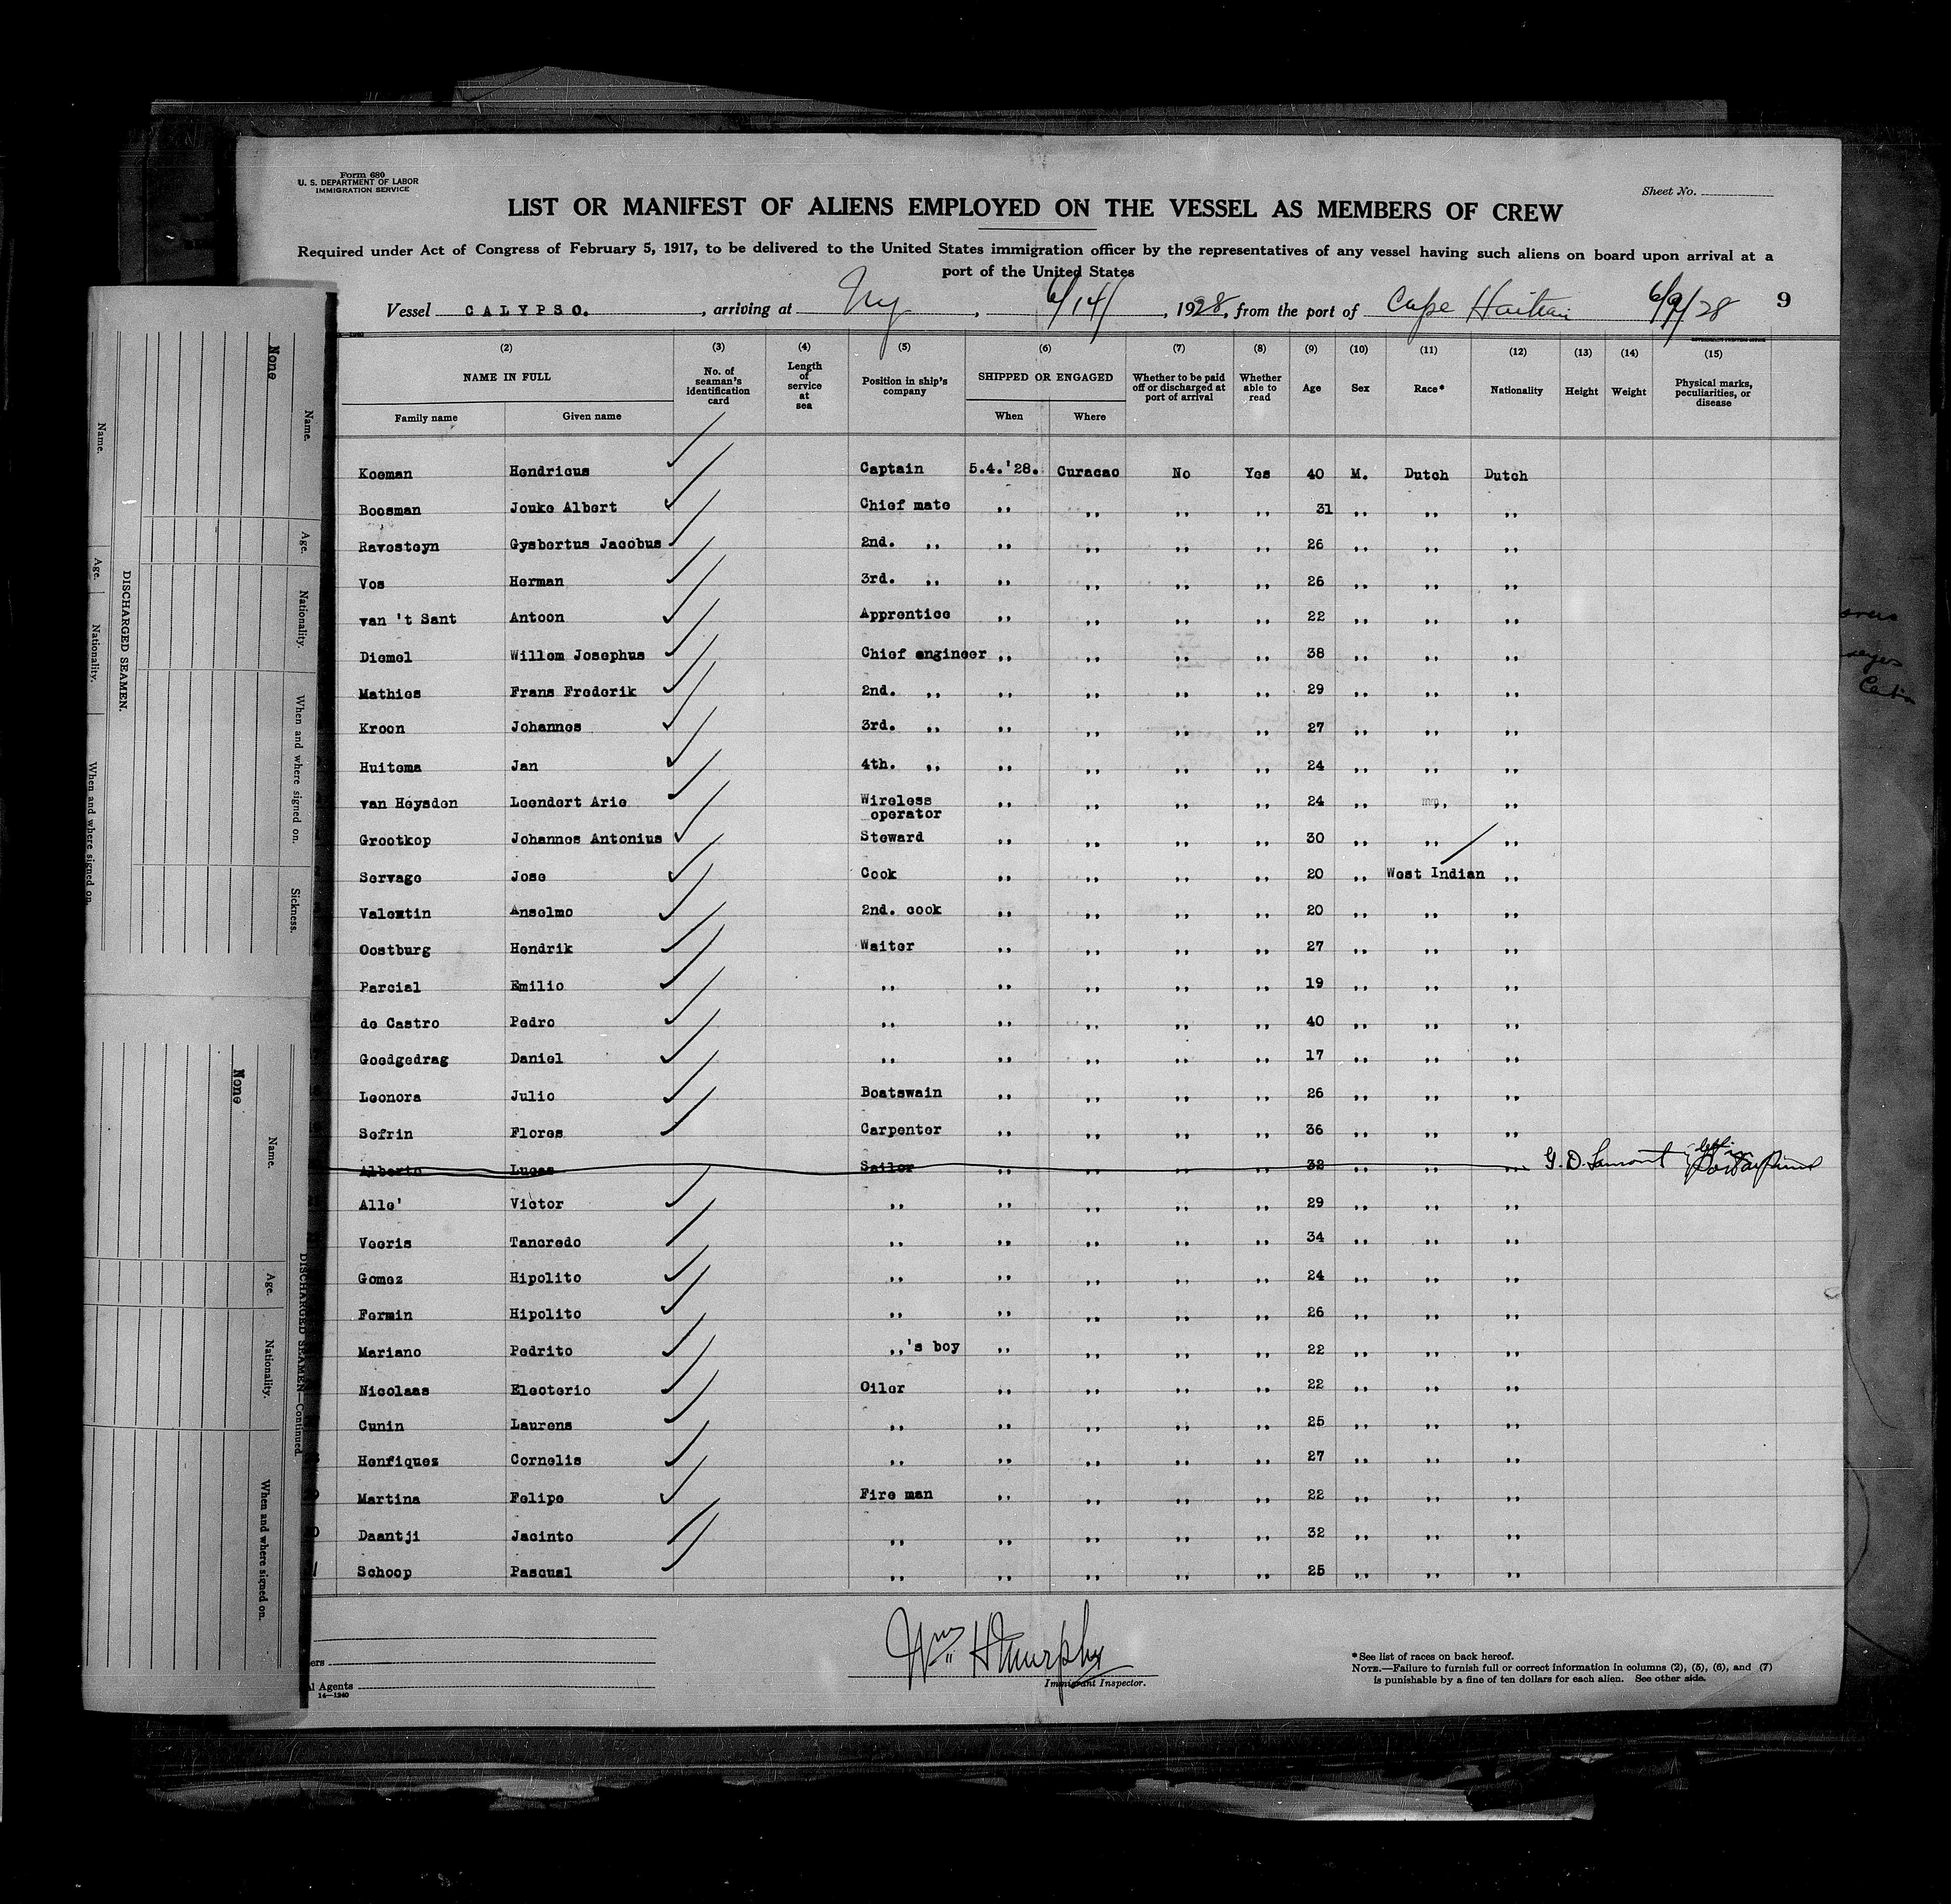 Form 680
U. S. DEPARTMENT OF LABOR
IMMIGRATION SERVICE
Sheet No.
LIST OR MANIFEST OF ALIENS EMPLOYED ON THE VESSEL AS MEMBERS OF CREW
Required under Act of Congress of February 5, 1917, to be delivered to the United States immigration officer by the representatives of any vessel having such aliens on board upon arrival at a
port of the United States
Vessel CALYPSO. , arriving at Ny , 6/14/ , 1928, from the port of Cape Haitien 6/9/28 9
(2) (3) (4) (5) (6) (7) (8) (9) (10) (11) (12) (13) (14) (15)
NAME IN FULL No. of seaman's identification card Length of service at sea Position in ship's company SHIPPED OR ENGAGED Whether to be paid off or discharged at port of arrival Whether able to read Age Sex Race* Nationality Height Weight Physical marks, peculiarities, or disease
Family name Given name When Where
Koeman Hendricus Captain 5.4.'28. Curacao No Yes 40 M. Dutch Dutch
Boosman Jouke Albert Chief mate ,, ,, ,, ,, 31 ,, ,, ,,
Ravesteyn Gysbertus Jacobus 2nd. ,, ,, ,, ,, ,, 26 ,, ,, ,,
Vos Herman 3rd. ,, ,, ,, ,, ,, 26 ,, ,, ,,
van 't Sant Antoon Apprentice ,, ,, ,, ,, 22 ,, ,, ,,
Diemel Willem Josephus Chief engineer ,, ,, ,, ,, 38 ,, ,, ,,
Mathies Frans Frederik 2nd. ,, ,, ,, ,, ,, 29 ,, ,, ,,
Kroon Johannes 3rd. ,, ,, ,, ,, ,, 27 ,, ,, ,,
Huitema Jan 4th. ,, ,, ,, ,, ,, 24 ,, ,, ,,
van Heysden Leendert Arie Wireless operator ,, ,, ,, ,, 24 ,, ,, ,,
Grootkop Johannes Antonius Steward ,, ,, ,, ,, 30 ,, ,, ,,
Servage Jose Cook ,, ,, ,, ,, 20 ,, West Indian ,,
Valentin Anselmo 2nd. cook ,, ,, ,, ,, 20 ,, ,, ,,
Oostburg Hendrik Waiter ,, ,, ,, ,, 27 ,, ,, ,,
Parcial Emilio ,, ,, ,, ,, ,, 19 ,, ,, ,,
de Castro Pedro ,, ,, ,, ,, ,, 40 ,, ,, ,,
Goedgedrag Daniel ,, ,, ,, ,, ,, 17 ,, ,, ,,
Leonora Julio Boatswain ,, ,, ,, ,, 26 ,, ,, ,,
Sefrin Flores Carpenter ,, ,, ,, ,, 36 ,, ,, ,,
Alberto Lucas Sailor ,, ,, ,, ,, 32 ,, ,, ,, G. D. Lamont
Alle' Victor ,, ,, ,, ,, ,, 29 ,, ,, ,,
Veeris Tancredo ,, ,, ,, ,, ,, 34 ,, ,, ,,
Gomez Hipolito ,, ,, ,, ,, ,, 24 ,, ,, ,,
Fermin Hipolito ,, ,, ,, ,, ,, 26 ,, ,, ,,
Mariano Pedrito ,,'s boy ,, ,, ,, ,, 22 ,, ,, ,,
Nicolaas Electerio Oiler ,, ,, ,, ,, 22 ,, ,, ,,
Cunin Laurens ,, ,, ,, ,, ,, 25 ,, ,, ,,
Henfiquez Cornelis ,, ,, ,, ,, ,, 27 ,, ,, ,,
Martina Felipe Fire man ,, ,, ,, ,, 22 ,, ,, ,,
Daantji Jacinto ,, ,, ,, ,, ,, 32 ,, ,, ,,
Schoop Pascual ,, ,, ,, ,, ,, 25 ,, ,, ,,
Wm H Murphy
Immigrant Inspector.
*See list of races on back hereof.
NOTE.—Failure to furnish full or correct information in columns (2), (5), (6), and (7)
is punishable by a fine of ten dollars for each alien. See other side.
l Agents
14—1240
DISCHARGED SEAMEN.
Name. Age. Nationality. When and where signed on.
Name. Age. Nationality. When and where signed on. Sickness.
None
DISCHARGED SEAMEN—Continued.
Name. Age. Nationality. When and where signed on.
None